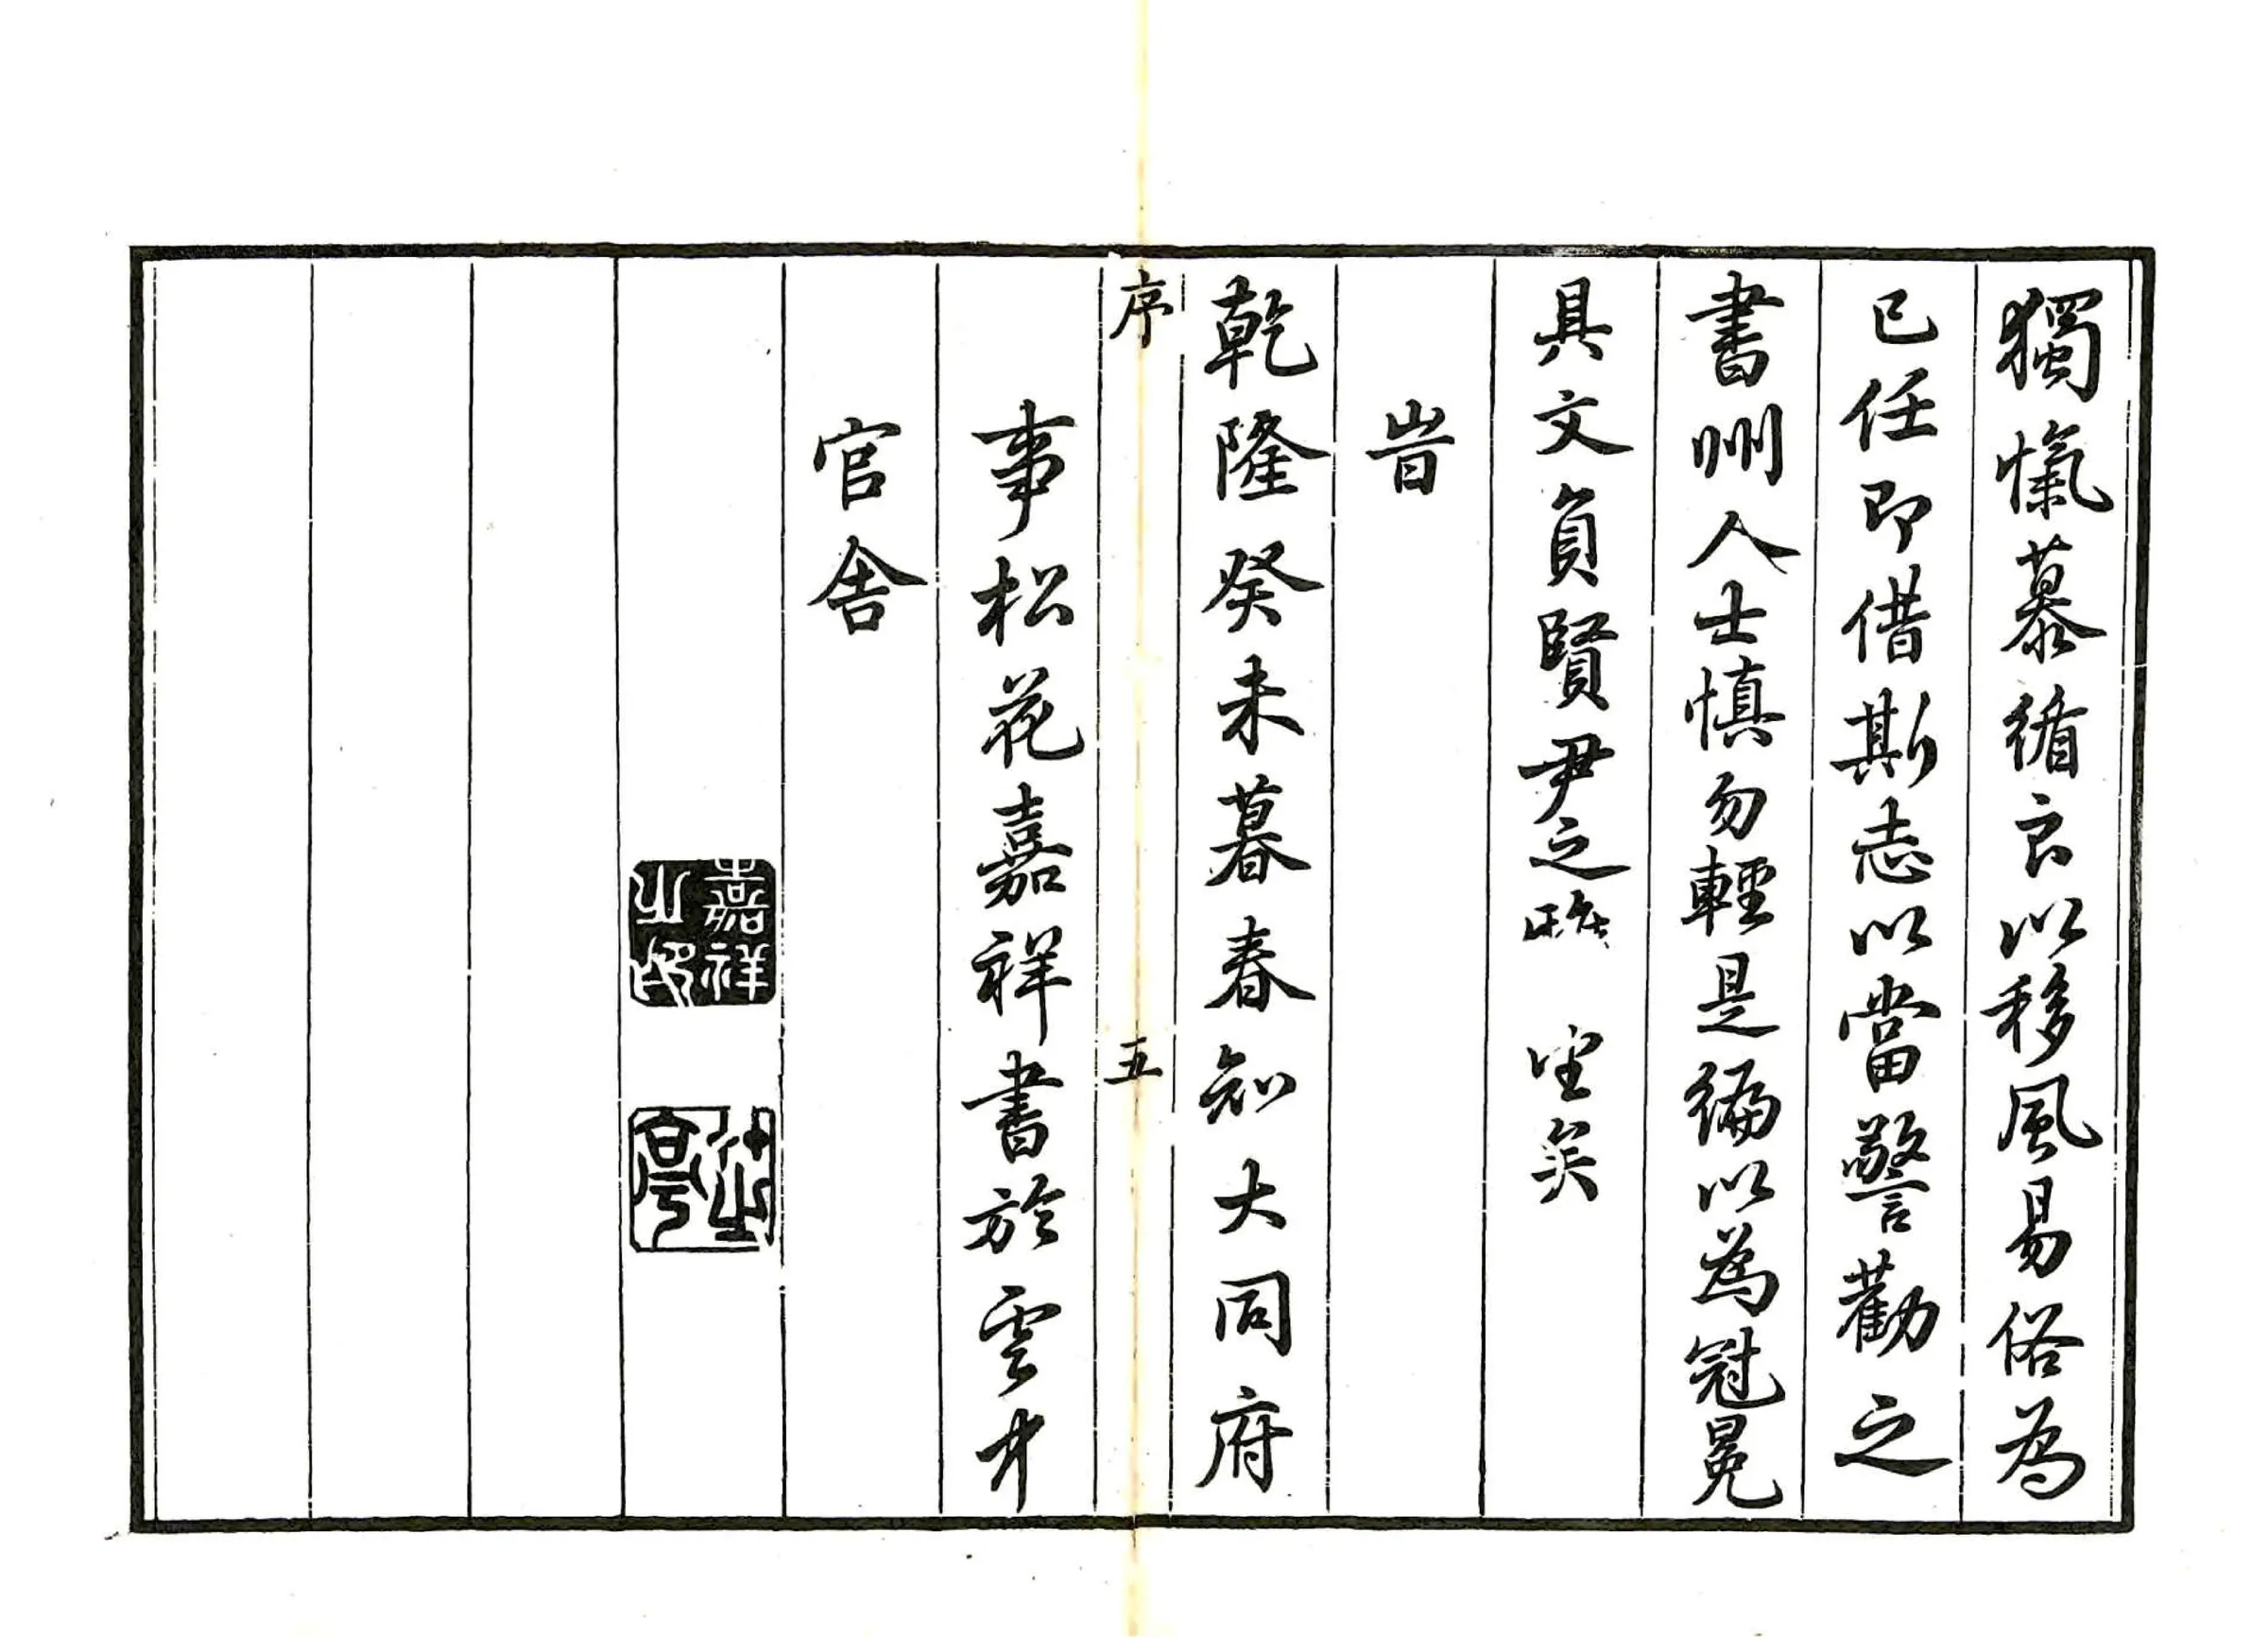 獨愾慕循良以移風易俗為
已任即借斯志以當警勸之
書州人士慎勿輕是編以為冠冕
具文負賢尹之矣
旹
乾隆癸未暮春知大同府
序 五
事松花嘉祥書於雲中
官舍
嘉祥之印
亭